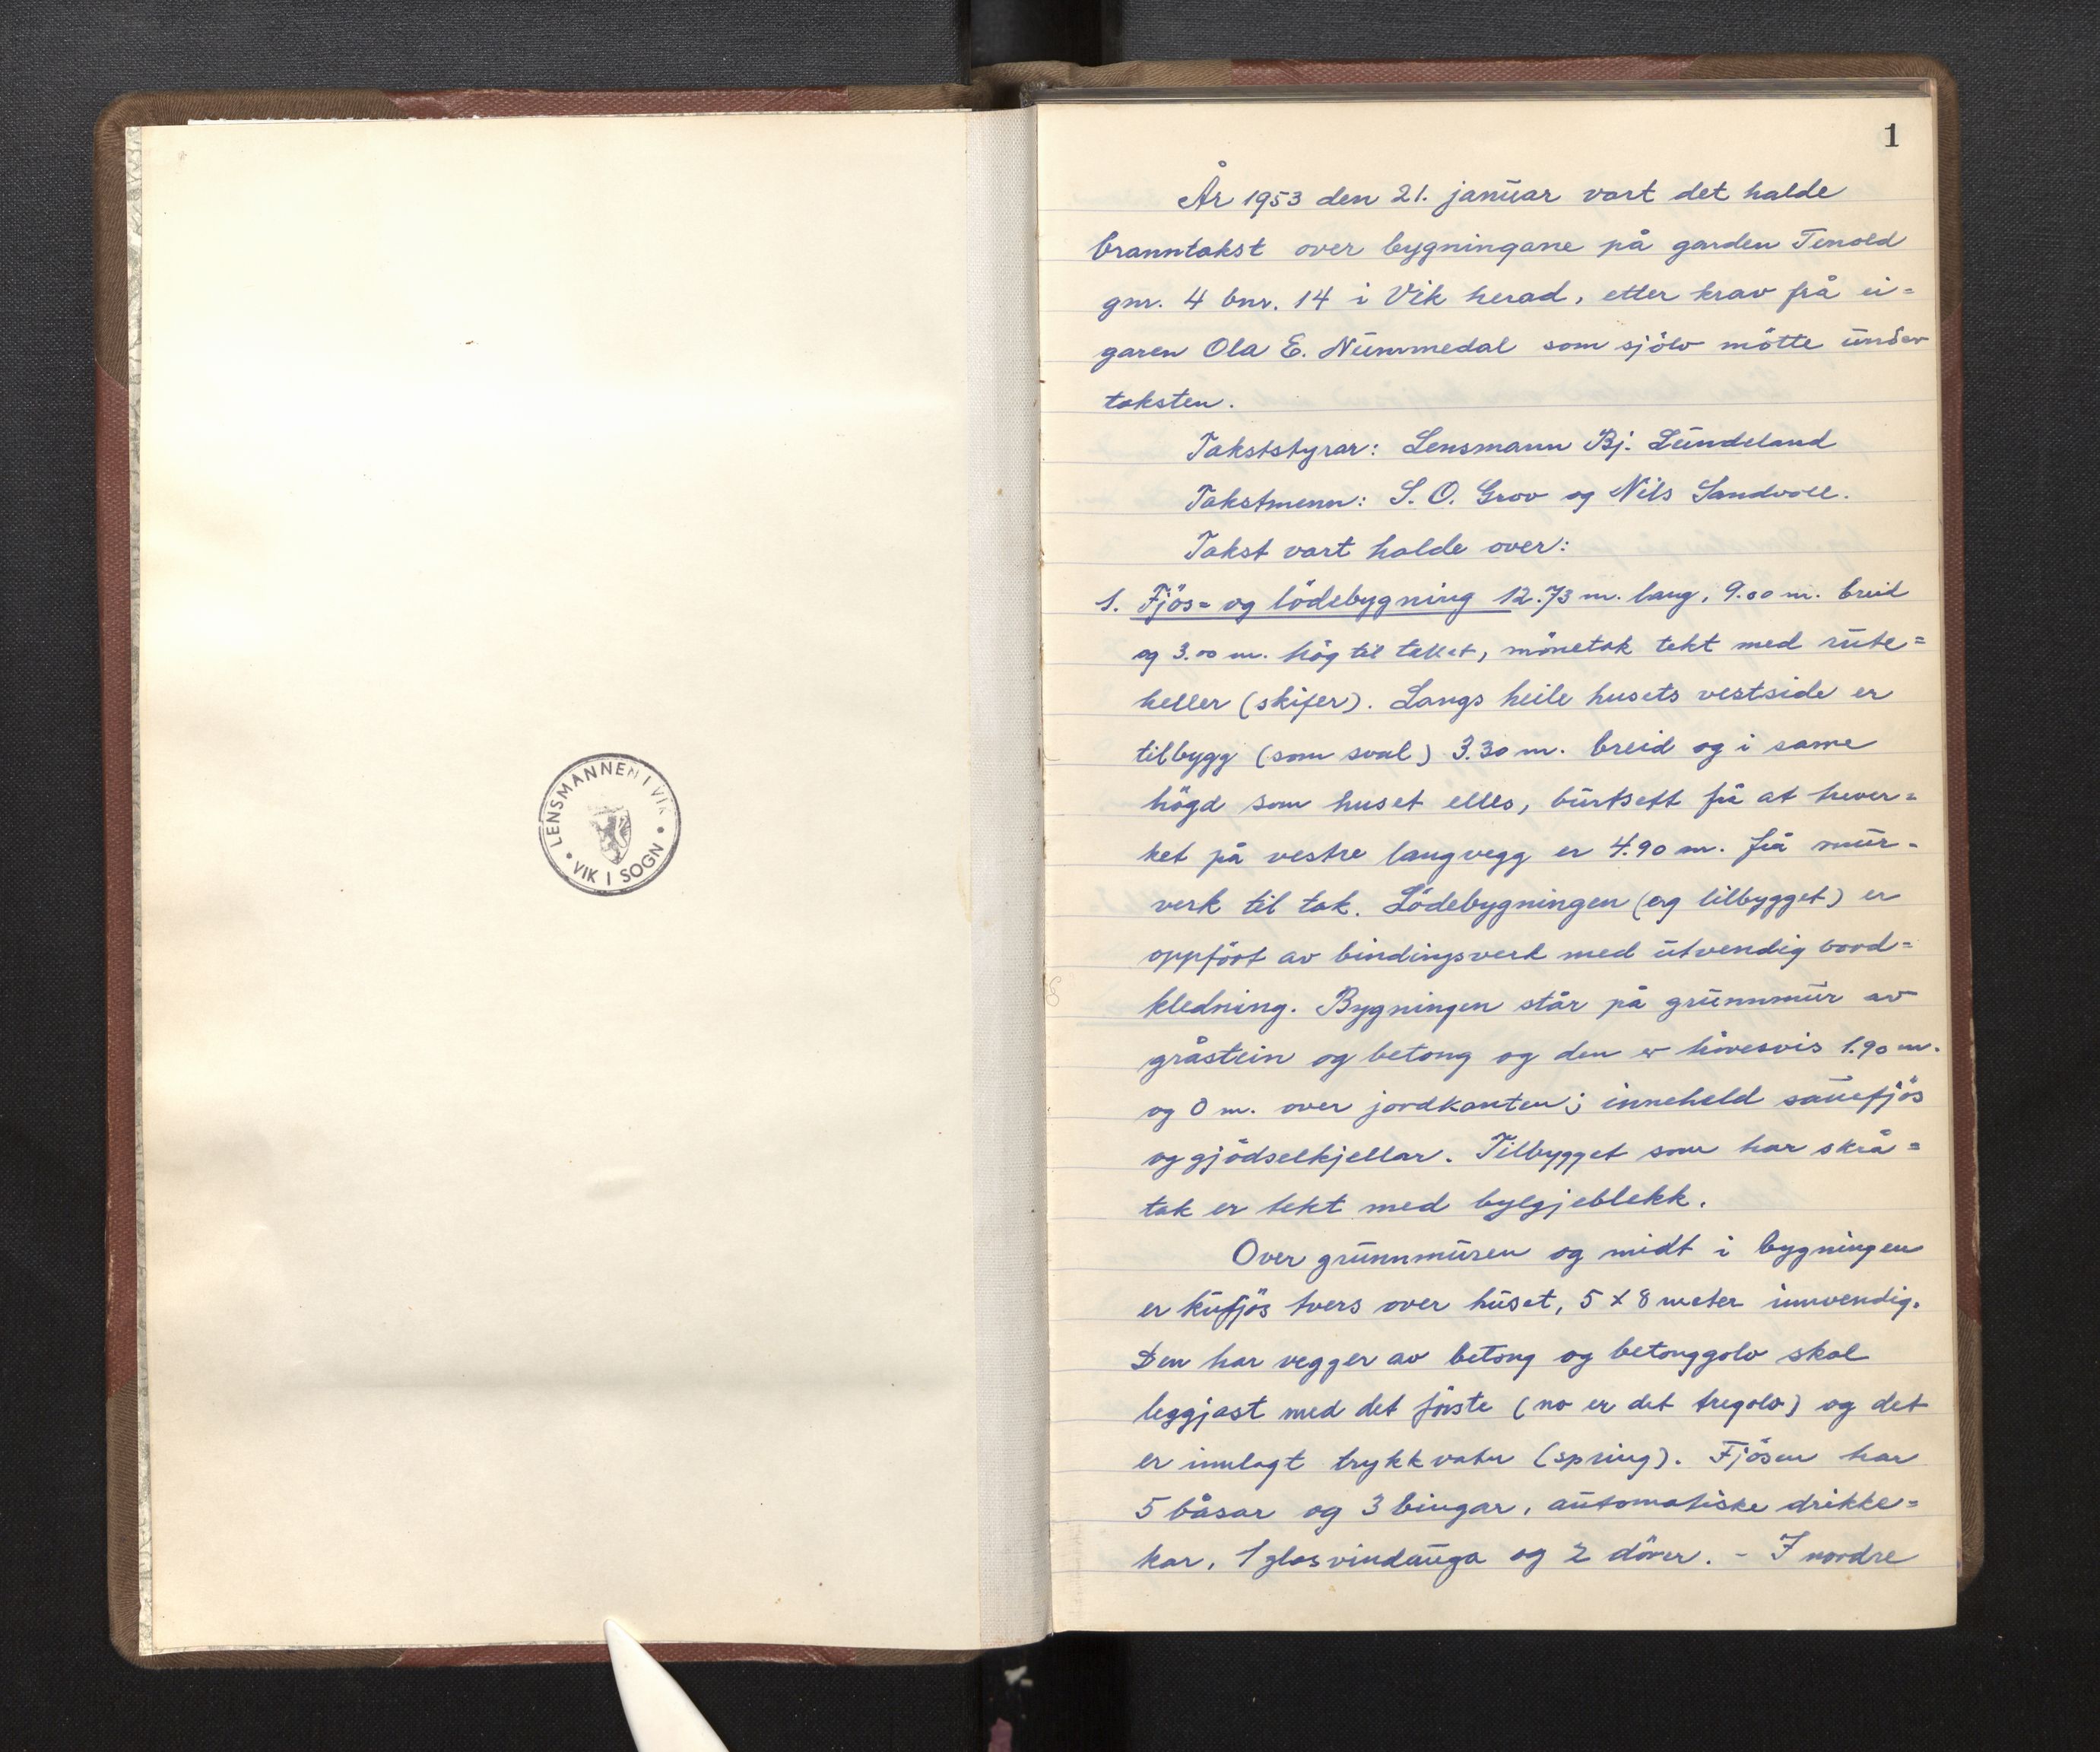 LENSMANNEN I VIK
• VIK I SOGN •
1
År 1953 den 21. januar vart det halde
branntakst over bygningane på garden Tenold
gnr. 4 bnr. 14 i Vik herad, etter krav frå ei=
garen Ola E. Nummedal som sjölv mötte under
taksten.
Takststyrar: Lensmann Bj. Lundeland
Takstmenn: S. O. Grov og Nils Sandvoll.
Takst vart halde over:
1. Fjös= og lödebygning 12.73 m. lang, 9.00 m. breid
og 3.00 m. hög til taket, mönetak tekt med rute=
heller (skifer). Langs heile husets vestside er
tilbygg (som sval) 3.30 m. breid og i same
högd som huset elles, burtsett frå at trever=
ket på vestre langvegg er 4.90 m. frå mur=
verk til tak. Lödebygningen (og tilbygget) er
oppfört av bindingsverk med utvendig bord=
kledning. Bygningen står på grunnmur av
gråstein og betong og den er hövesvis 1.90 m.
og 0 m. over jordkanten; inneheld sauefjös
og gjödselkjellar. Tilbygget som har skrå=
tak er tekt med bylgjeblekk.
Over grunnmuren og midt i bygningen
er kufjös tvers over huset, 5 x 8 meter innvendig.
Den har vegger av betong og betonggolv skal
leggjast med det förste (no er det tregolv) og det
er innlagt trykkvatn (spring). Fjösen har
5 båsar og 3 bingar, automatiske drikke=
kar, 1 glasvindauga og 2 dörer. - I nordre